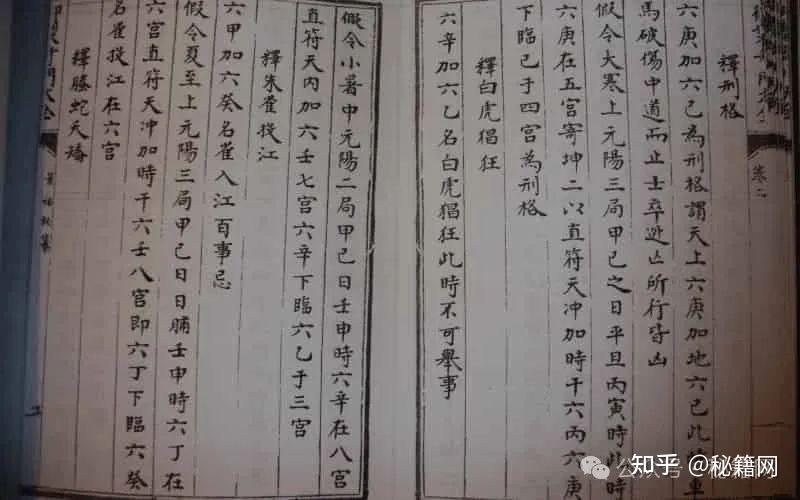 卷二
釋刑格
六庚加六己為刑格謂天上六庚加地六己此車
馬破傷中道而止士卒逃亡所行皆凶
假令大寒上元陽三局甲己之日平旦丙寅時此時
六庚在五宮寄坤二以直符天冲加時干六丙六庚
下臨己于四宮為刑格
釋白虎猖狂
六辛加六乙名白虎猖狂此時不可舉事
假令小暑中元陽二局甲己日壬申時六辛在八宮
直符天內加六壬七宮六辛下臨六乙于三宮
釋朱雀投江
六甲加六癸名雀入江百事忌
假令夏至上元陽三局甲己日日晡壬申時六丁在
六宮直符天冲加時干六壬八宮即六丁下臨六癸
名雀投江在六宮
釋騰蛇夭矯
知乎 @秘籍网
公众号